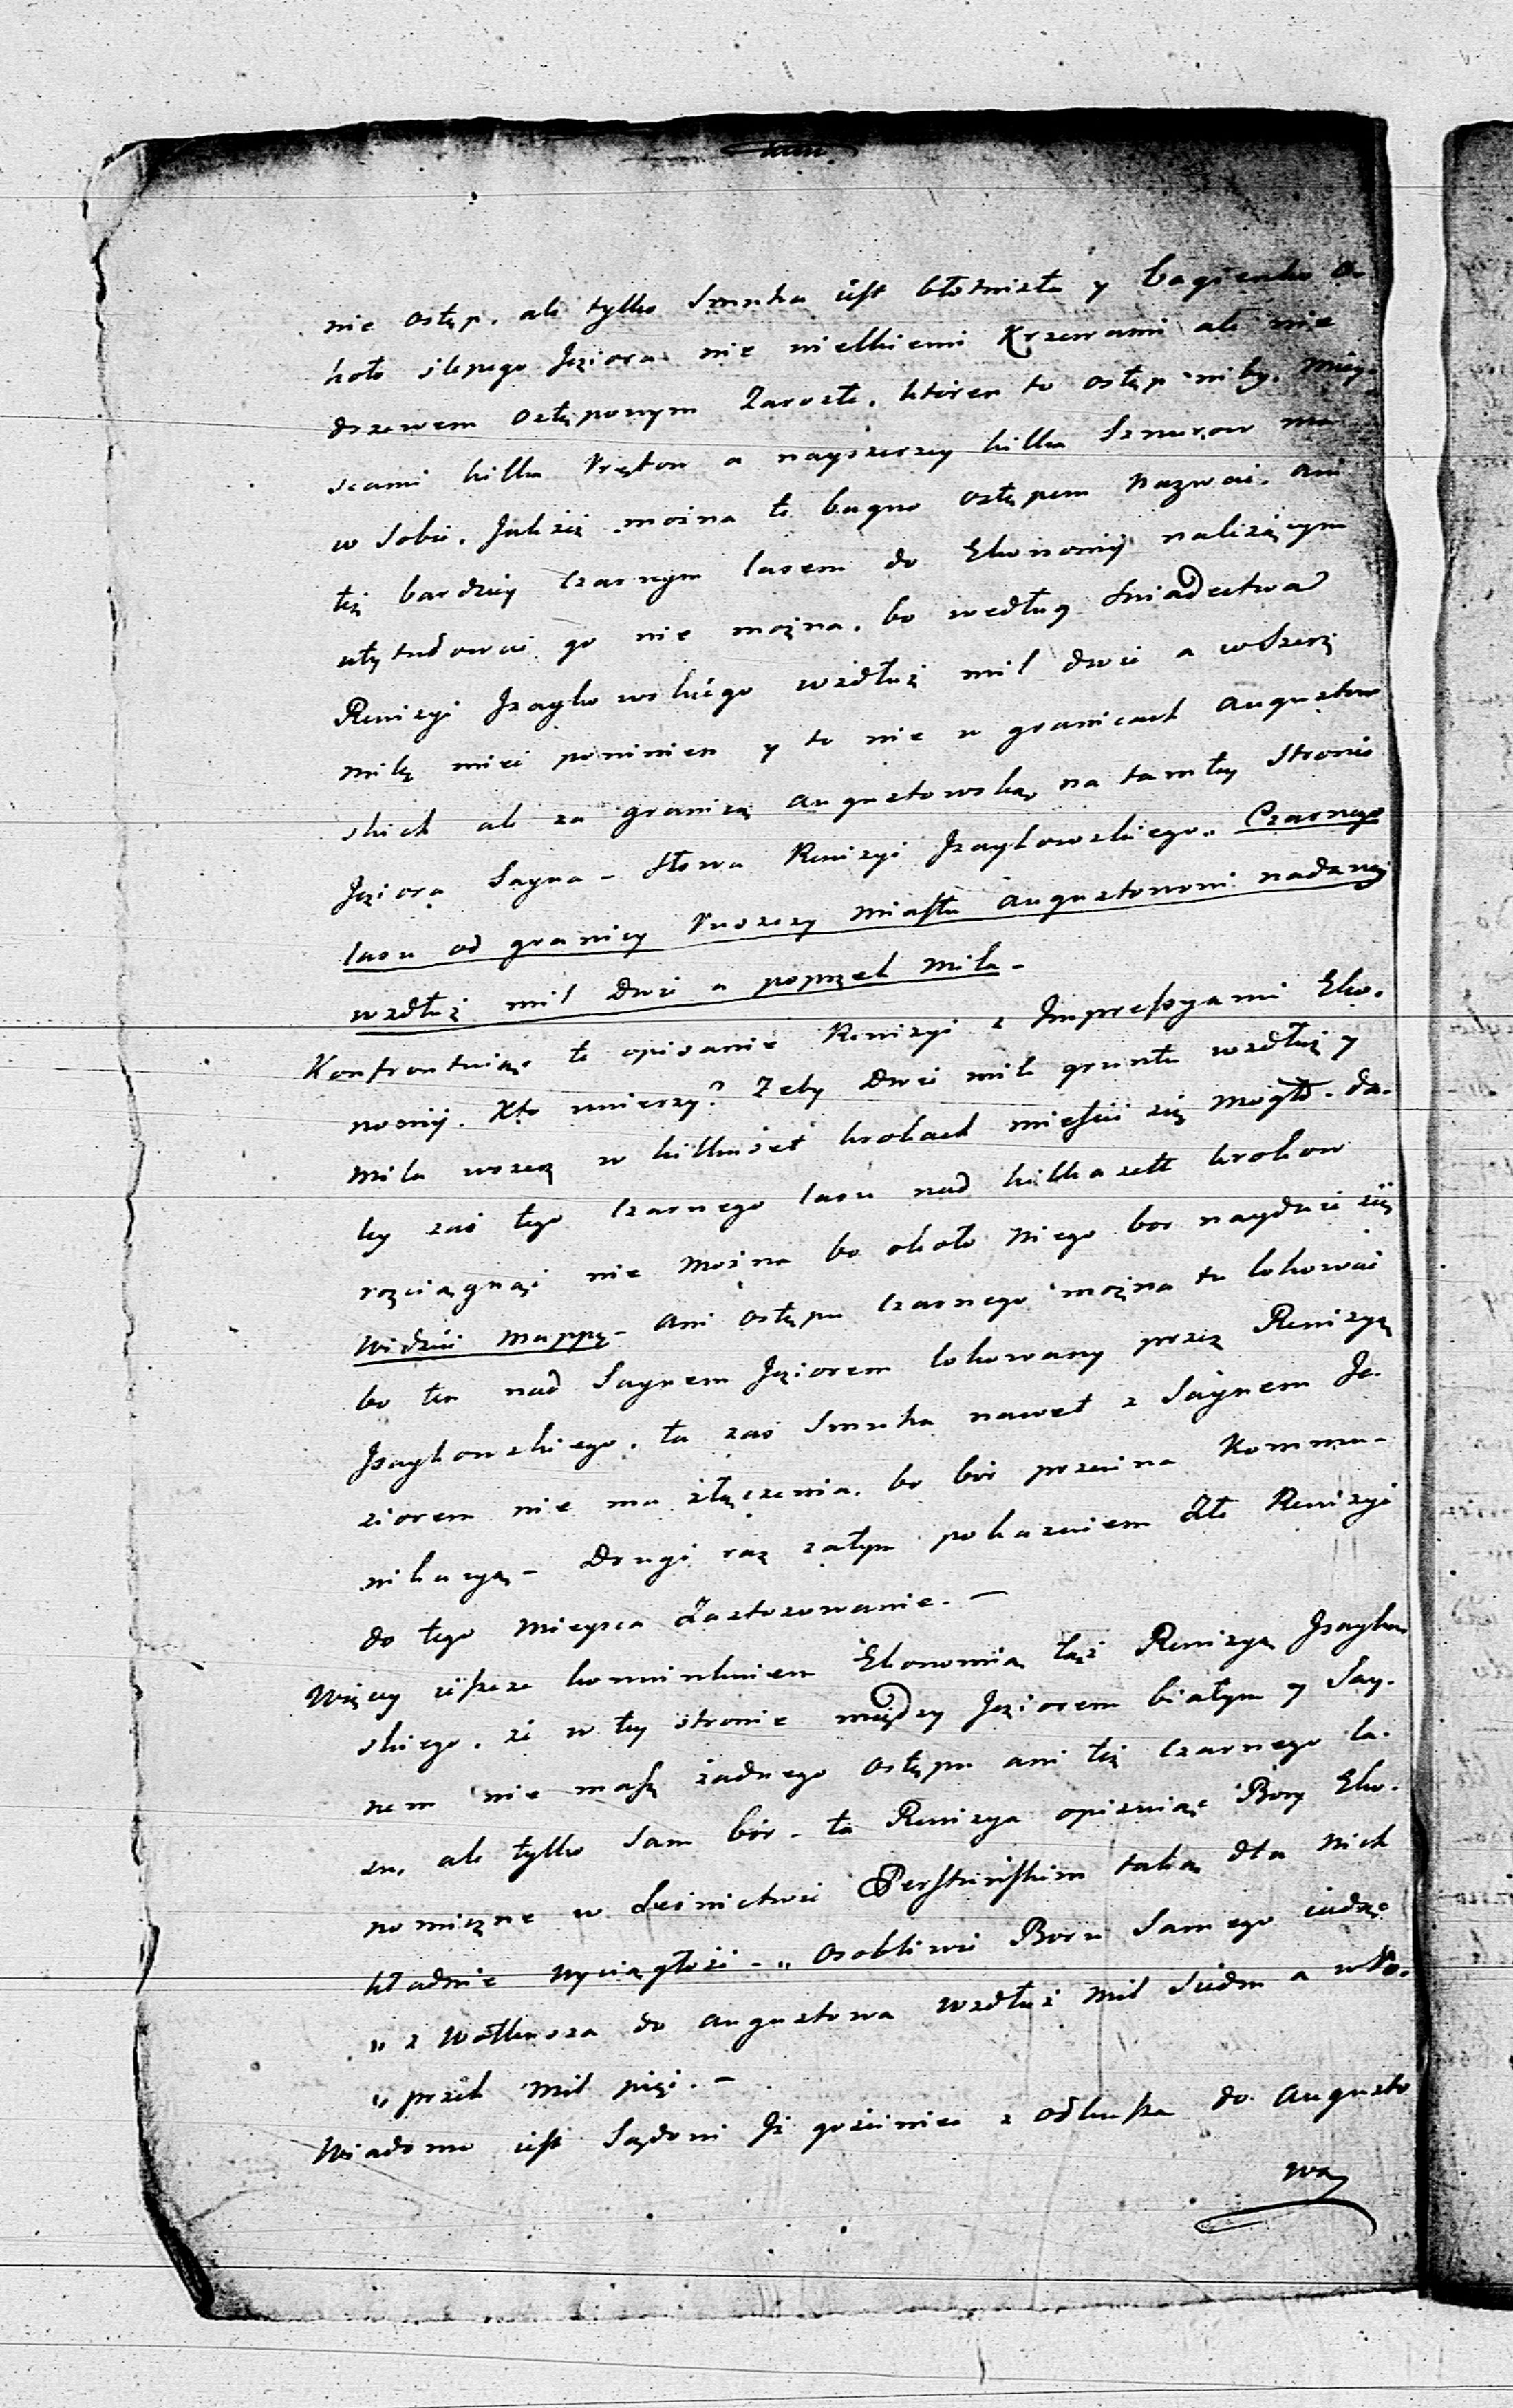 nie ostęp. ale tylko Smuha iest błotnista y bagienko o-
koło slepego Jeziora nie wielkiemi Krzewami ale nie
drzewem ostępowym Zarosłe. ktoren to ostęp niby. miey-
scami kilka Prętow a nayszerzey kilka Sznurow ma
w Sobie. Jakżeż można te bagno ostępem nazwać. ani
też bardziey czarnym lasem do Ekonomij należącym
utytudować go nie można. bo według Swiadectwa
Rewizyi Jsaykowskiego wzdłuż mil dwie a wszerz
milę mieć powinien y to nie w granicach augustow
skich ale za granicą augustowską na tamtey stronie
Jeziora Sayna - słowa Rewizyi Jsaykowskiego „ Czarnego
lasu od granicy Puszczy miastu augustowowi nadaney
wzdłuż mil dwie a poprzek mila -
Konfrontuiąc te opisanie Rewizyi z Jmpressyami Eko-
nomij. Kto uwierzy? Zeby dwie mile gruntu wzdłuż y
mila wszerz w kilkuset krokach mieścić się mogło. da-
ley zaś tego czarnego lasu nad kilkaset krokow
rozciągnąć nie można bo około niego bor nayduie się
Widzieć mappę - ani ostępu czarnego można tu lokować
bo ten nad Saynem Jeziorem lokowany przez Rewizyą
Jsaykowskiego. ta zaś Smuha nawet z Saynem Je-
ziorem nie ma złączenia. bo bór przecina Kommu-
nikacyą - Drugi raz zatym pokazuiem złe Rewizyi
do tego mieysca Zastosowanie. -
Więcey ieszcze konwinkuiem Ekonomią taż Rewizyą Jsaykow
skiego. że w tey stronie między Jeziorem białym y Say-
nem nie masz żadnego ostępu ani też czarnego la-
su, ale tylko sam bór - ta Rewizya opisuiąc Bory Eko-
nomiczne w Leśnictwie Perstuńskim taką dla nich
kładnie wyciągłość - „ osobliwie Boru Samego iadąc
„ z Wołkusza do augustowa wzdłuż mil siedm a wPo-
„ przek mil pięć. -
Wiadomo iest Sądowi Jż gościniec z odkusza do augusto
wa